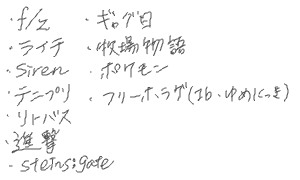 ・f/z
・ライチ
・siren
・テニプリ
・リトバス
・進撃
・steins;gate
・ギャグ日
・牧場物語
・ポケモン
・フリーホラゲ(Ib・ゆめにっき)